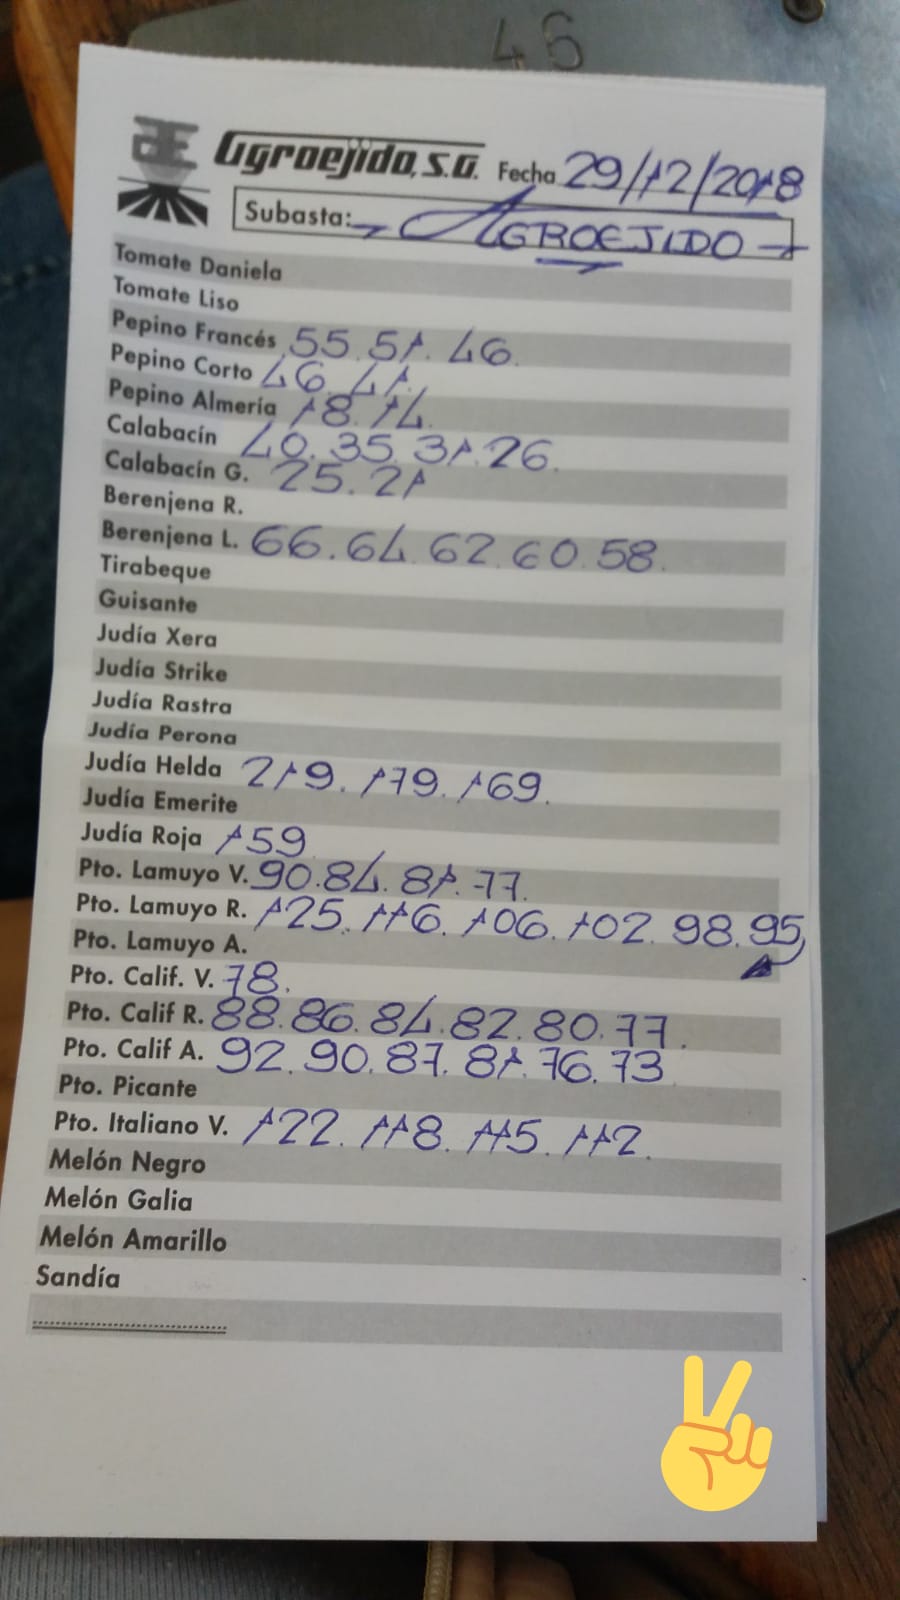 46
Agroejido, S.A. Fecha 29/12/2018
Subasta: AGROEJIDO
Tomate Daniela
Tomate Liso
Pepino Francés 55. 51. 46.
Pepino Corto 46. 41.
Pepino Almería 18. 14.
Calabacín 40. 35. 31. 26.
Calabacín G. 25. 21
Berenjena R.
Berenjena L. 66. 64. 62. 60. 58.
Tirabeque
Guisante
Judía Xera
Judía Strike
Judía Rastra
Judía Perona
Judía Helda 219. 179. 169.
Judía Emerite
Judía Roja 159
Pto. Lamuyo V. 90. 84. 81. 77.
Pto. Lamuyo R. 125. 116. 106. 102. 98. 95
Pto. Lamuyo A.
Pto. Calif. V. 78.
Pto. Calif R. 88. 86. 84. 82. 80. 77.
Pto. Calif A. 92. 90. 87. 81. 76. 73
Pto. Picante
Pto. Italiano V. 122. 118. 115. 112.
Melón Negro
Melón Galia
Melón Amarillo
Sandía